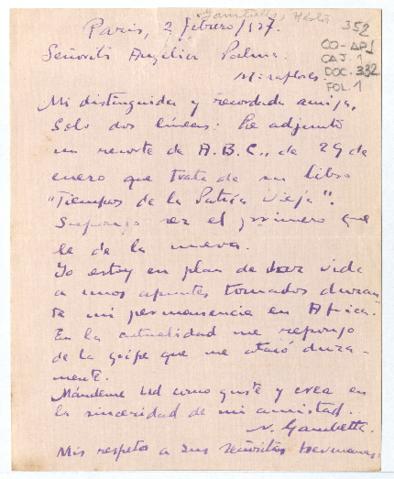 Gambetta, Néstor
352
CO-AP1
CAJ. 1
DOC. 332
FOL. 1
Paris, 2 febrero/927.
Señorita Angélica Palma.
Miraflores.
Mi distinguida y recordada amiga,
Solo dos líneas: Le adjunto
un recorte de A.B.C., de 29 de
enero que trata de su libro
"Tiempos de la Patria Vieja".
Supongo ser el primero que
le de la nueva.
Yo estoy en plan de dar vida
a unos apuntes tomados duran-
te mi permanencia en Africa.
En la actualidad me repongo
de la gripe que me atacó dura-
mente.
Mándeme Ud como guste y crea en
la sinceridad de mi amistad.
N. Gambetta.
Mis respetos a sus señoritas hermanas.